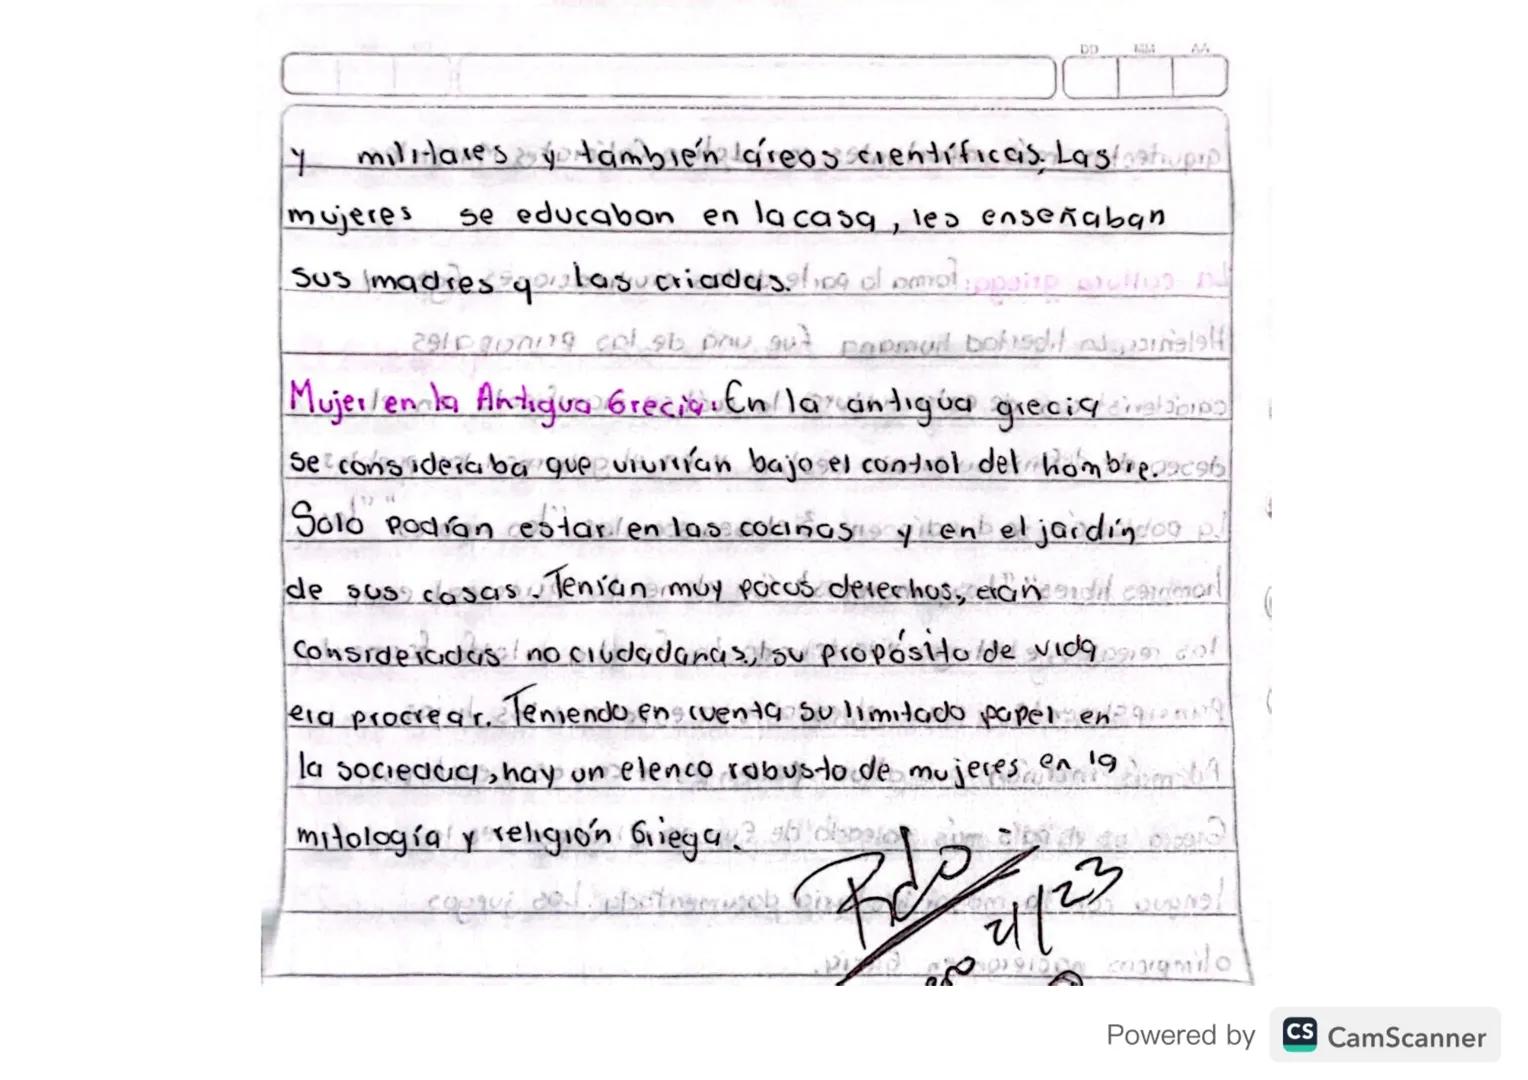 DD MM AA
y militares y también áreas científicas. Las
mujeres se educaban en la casa, les enseñaban
sus madres y las criadas.
Mujer en la Antigua Grecia. En la antigua grecia
se consideraba que vivirían bajo el control del hombre.
Solo podían estar en las cocinas y en el jardín
de sus casas. Tenían muy pocos derechos, eran
consideradas no ciudadanas, su propósito de vida
era procrear. Teniendo en cuenta su limitado papel en
la sociedad, hay un elenco robusto de mujeres en la
mitología y religión Griega.
Powered by CS CamScanner